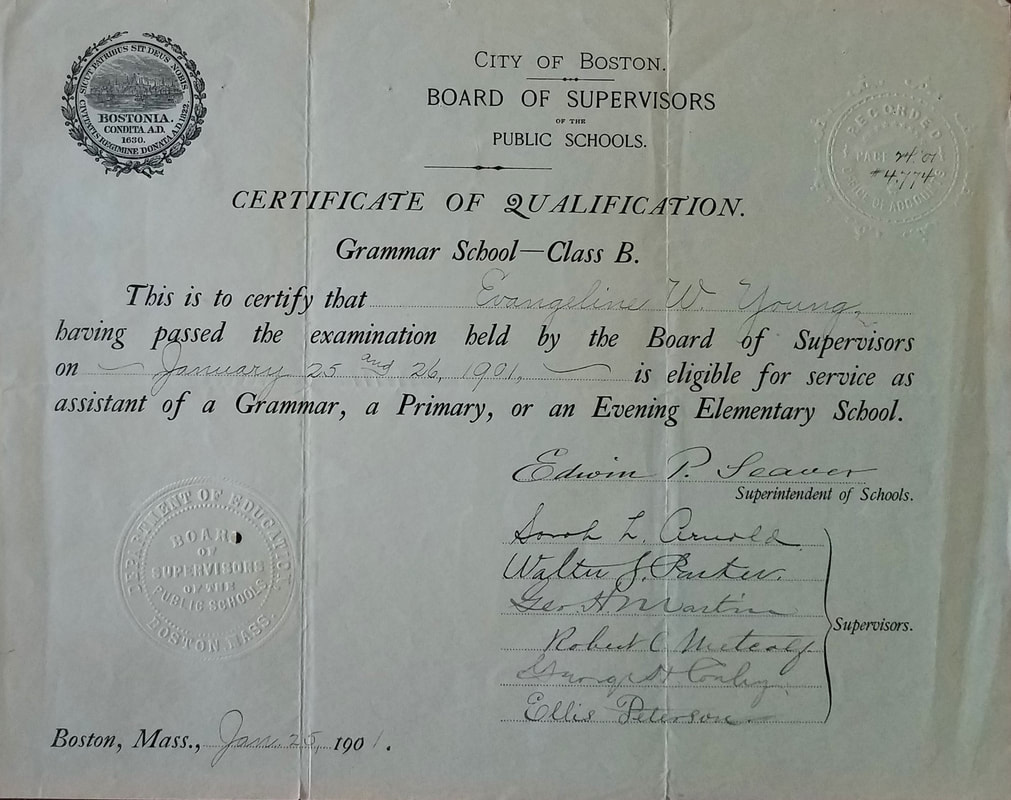 SICUT PATRIBUS SIT DEUS NOBIS
BOSTONIA.
CONDITA A.D.
1630.
CIVITATIS REGIMINE DONATA A.D. 1822.
CITY OF BOSTON.
BOARD OF SUPERVISORS
OF THE
PUBLIC SCHOOLS.
RECORDED
PAGE 24.01
#4,774
CERTIFICATE OF QUALIFICATION.
Grammar School—Class B.
This is to certify that Evangeline W. Young,
having passed the examination held by the Board of Supervisors
on January 25 and 26, 1901, is eligible for service as
assistant of a Grammar, a Primary, or an Evening Elementary School.
Edwin P. Seaver
Superintendent of Schools.
Sarah L. Arnold
Walter S. Parker.
Geo. H. Martin
Robert C. Metcalf
George H. Conley.
Ellis Peterson
Supervisors.
DEPARTMENT OF EDUCATION
BOARD
OF
SUPERVISORS
OF THE
PUBLIC SCHOOLS
BOSTON MASS.
Boston, Mass., Jan. 25, 1901.